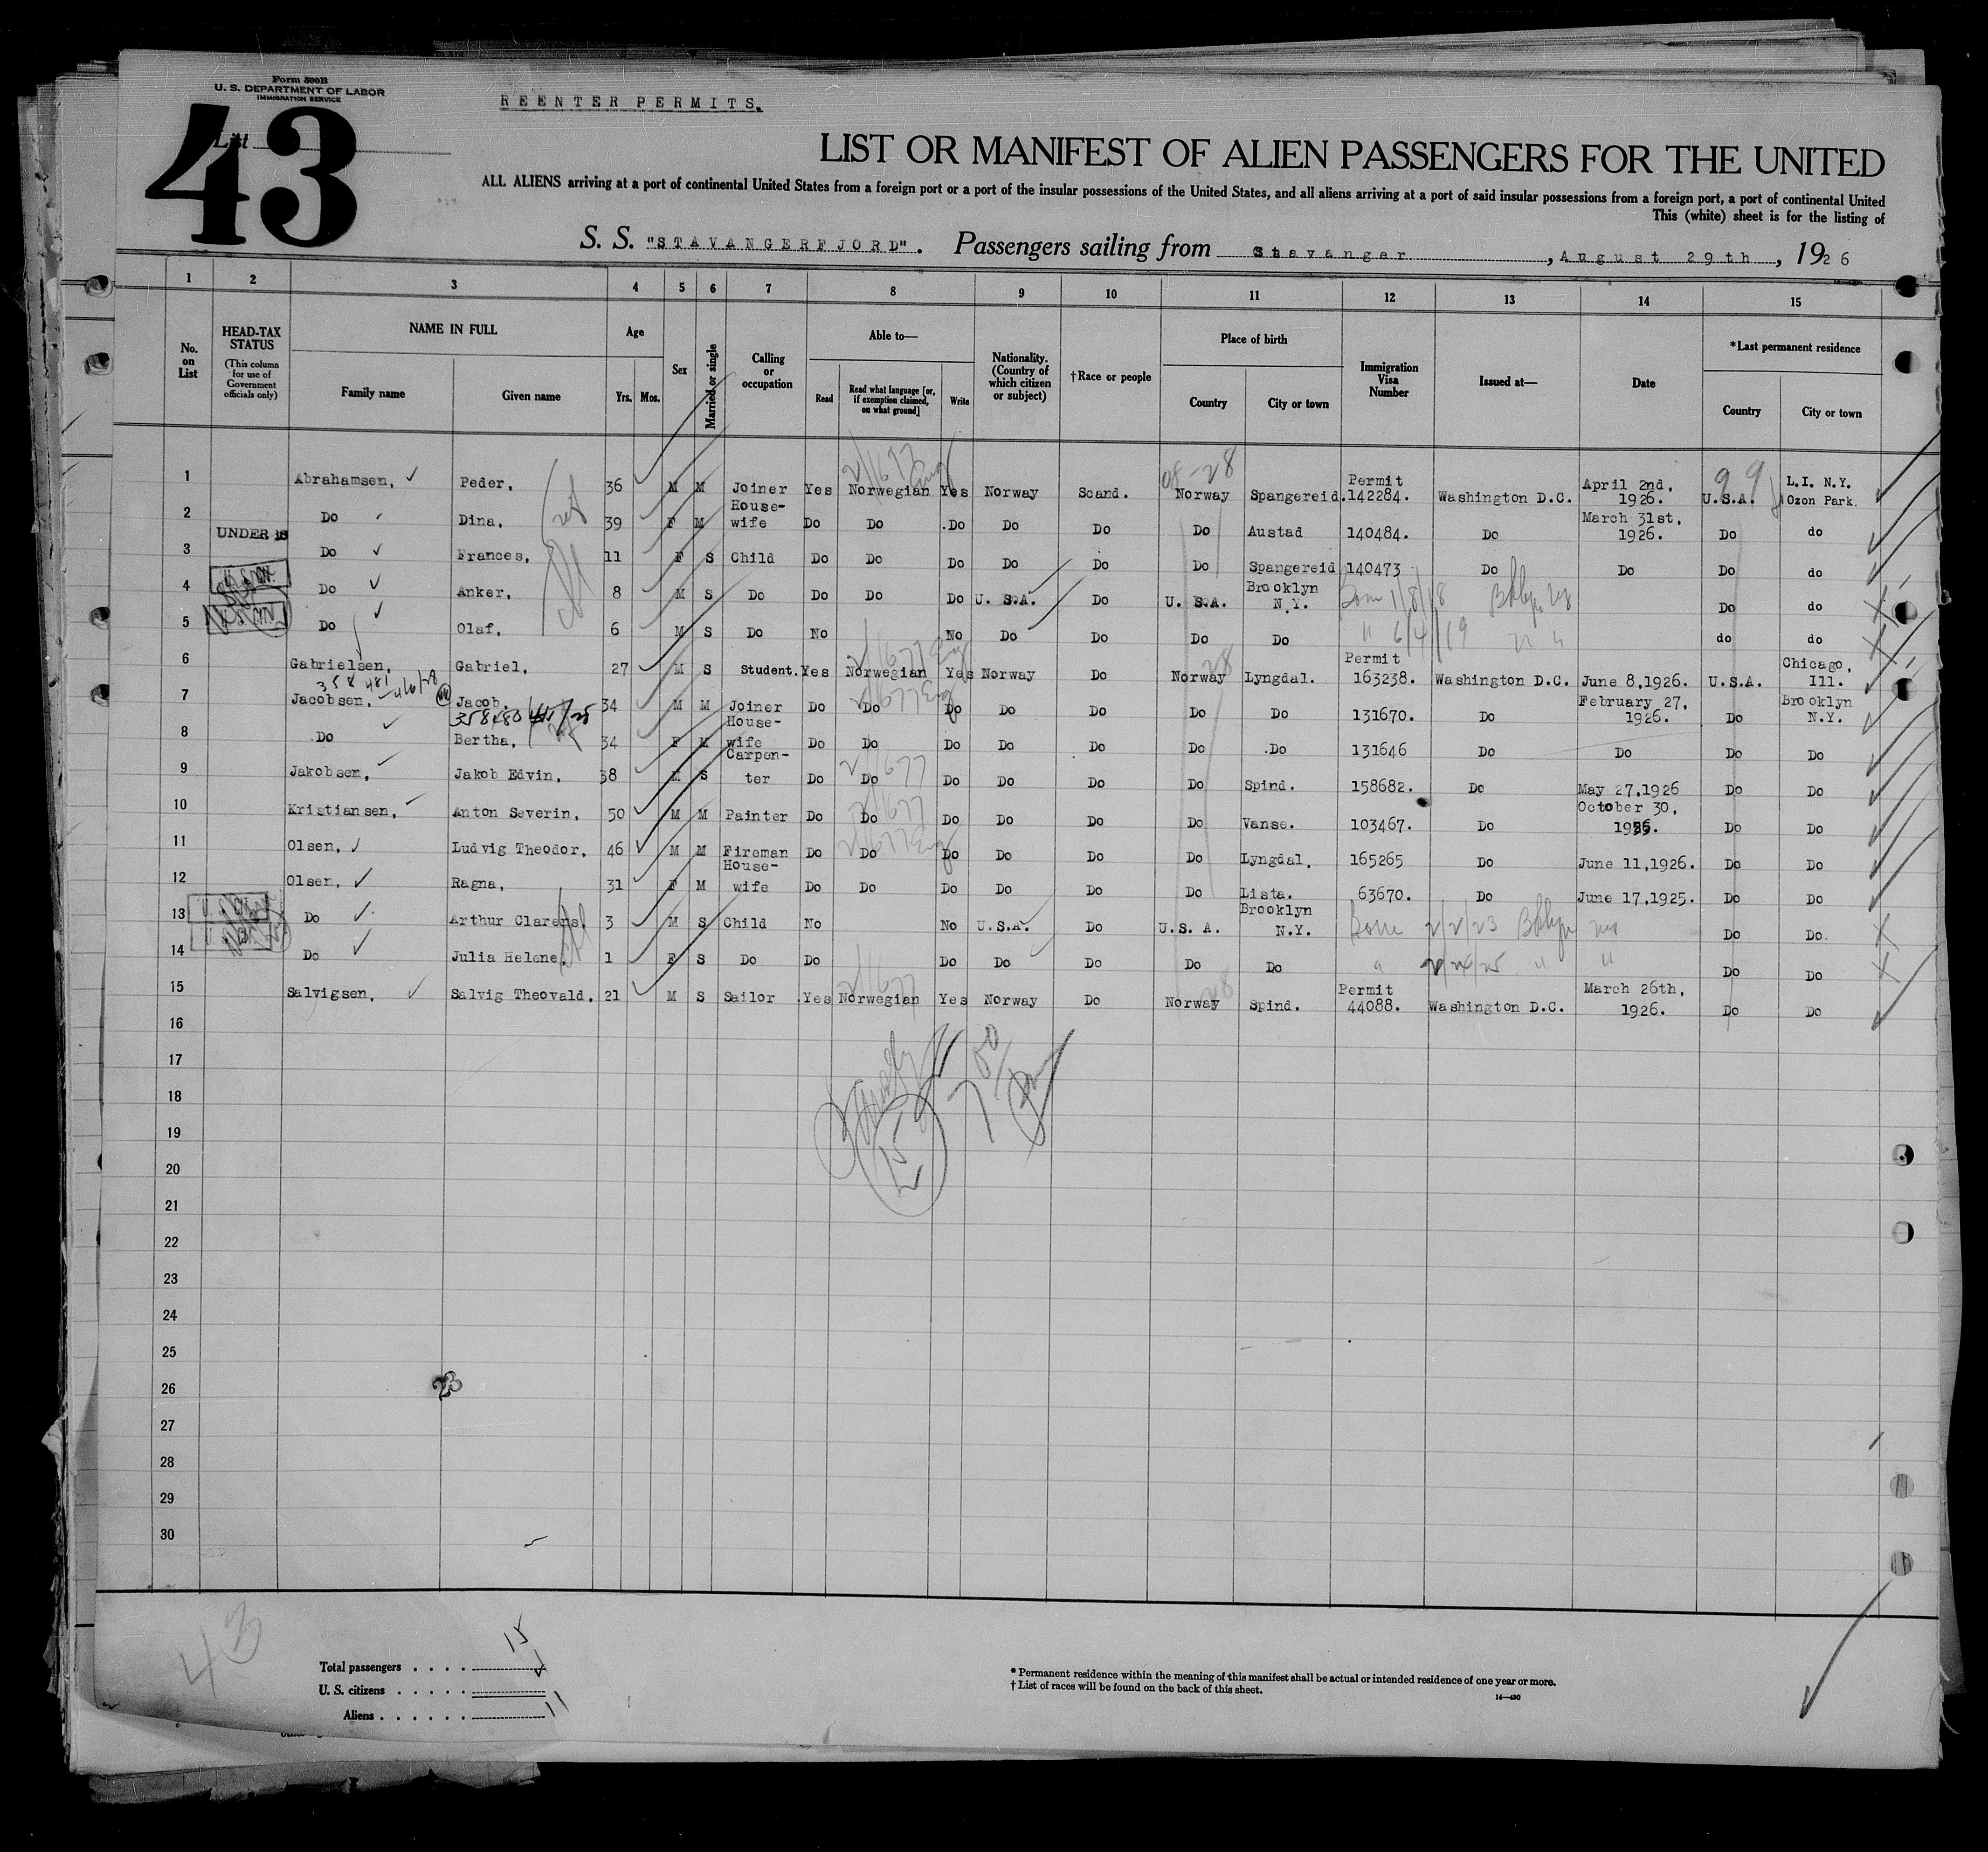 Form 500B
U. S. DEPARTMENT OF LABOR
IMMIGRATION SERVICE
REENTER PERMITS.
List
43
LIST OR MANIFEST OF ALIEN PASSENGERS FOR THE UNITED
ALL ALIENS arriving at a port of continental United States from a foreign port or a port of the insular possessions of the United States, and all aliens arriving at a port of said insular possessions from a foreign port, a port of continental United
This (white) sheet is for the listing of
S. S. "STAVANGERFJORD". Passengers sailing from Stavanger, August 29th, 1926
1 2 3 4 5 6 7 8 9 10 11 12 13 14 15
No. on List
HEAD-TAX STATUS (This column for use of Government officials only)
NAME IN FULL Family name Given name
Age Yrs. Mos.
Sex
Married or single
Calling or occupation
Able to— Read Read what language [or, if exemption claimed, on what ground] Write
Nationality. (Country of which citizen or subject)
†Race or people
Place of birth Country City or town
Immigration Visa Number
Issued at—
Date
*Last permanent residence Country City or town
1 Abrahamsen, Peder, 36 M M Joiner Yes Norwegian Yes Norway Scand. Norway Spangereid. Permit 142284. Washington D.C. April 2nd, 1926. U.S.A. L.I. N.Y. Ozon Park.
2 Do Dina, 39 F M House-wife Do Do Do Do Do Do Austad 140484. Do March 31st, 1926. Do do
3 UNDER 16 Do Frances, 11 F S Child Do Do Do Do Do Do Spangereid 140473 Do Do Do do
4 Do Anker, 8 M S Do Do Do Do U. S.A. Do U. S.A. Brooklyn N.Y. Born 1/8/18 Do do
5 Do Olaf, 6 M S Do No No Do Do Do Do " 6/4/19 " " do do
6 Gabrielsen, Gabriel, 27 M S Student. Yes Norwegian Yes Norway Do Norway Lyngdal. Permit 163238. Washington D.C. June 8,1926. U.S.A. Chicago, Ill.
358 481
7 Jacobsen, Jacob, 34 M M Joiner Do Do Do Do Do Do Do 131670. Do February 27, 1926. Do Brooklyn N.Y.
8 Do Bertha, 34 F M House-wife Do Do Do Do Do Do Do 131646 Do Do Do Do
9 Jakobsen, Jakob Edvin, 38 M S Carpen-ter Do Do Do Do Do Do Spind. 158682. Do May 27,1926 Do Do
10 Kristiansen, Anton Severin, 50 M M Painter Do Do Do Do Do Do Vanse. 103467. Do October 30, Do Do
11 Olsen, Ludvig Theodor, 46 M M Fireman Do Do Do Do Do Do Lyngdal. 165265 Do June 11,1926. Do Do
12 Olsen, Ragna, 31 F M House-wife Do Do Do Do Do Do Lista. 63670. Do June 17,1925. Do Do
13 Do Arthur Clarens, 3 M S Child No No U.S.A. Do U.S. A. Brooklyn N.Y. Born 2/2/23 Do Do
14 Do Julia Helene, 1 F S Do Do Do Do Do Do Do " " Do Do
15 Salvigsen, Salvig Theovald. 21 M S Sailor Yes Norwegian Yes Norway Do Norway Spind. Permit 44088. Washington D.C. March 26th, 1926. Do Do
16
17
18
19
20
21
22
23
24
25
26
27
28
29
30
15
23
43
Total passengers 15
U. S. citizens
Aliens 11
* Permanent residence within the meaning of this manifest shall be actual or intended residence of one year or more.
† List of races will be found on the back of this sheet.
14—430